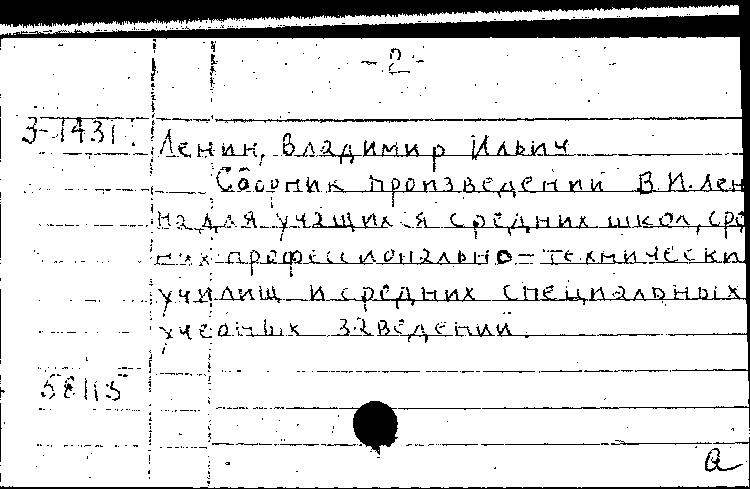 - 2 -
3-1431.
Ленин, Владимир Ильич
Сборник произведений В.И. Лен
на для учащихся средних школ, сре
них профессионально-технически
училищ и средних специальных
учебных заведений.
58115
а